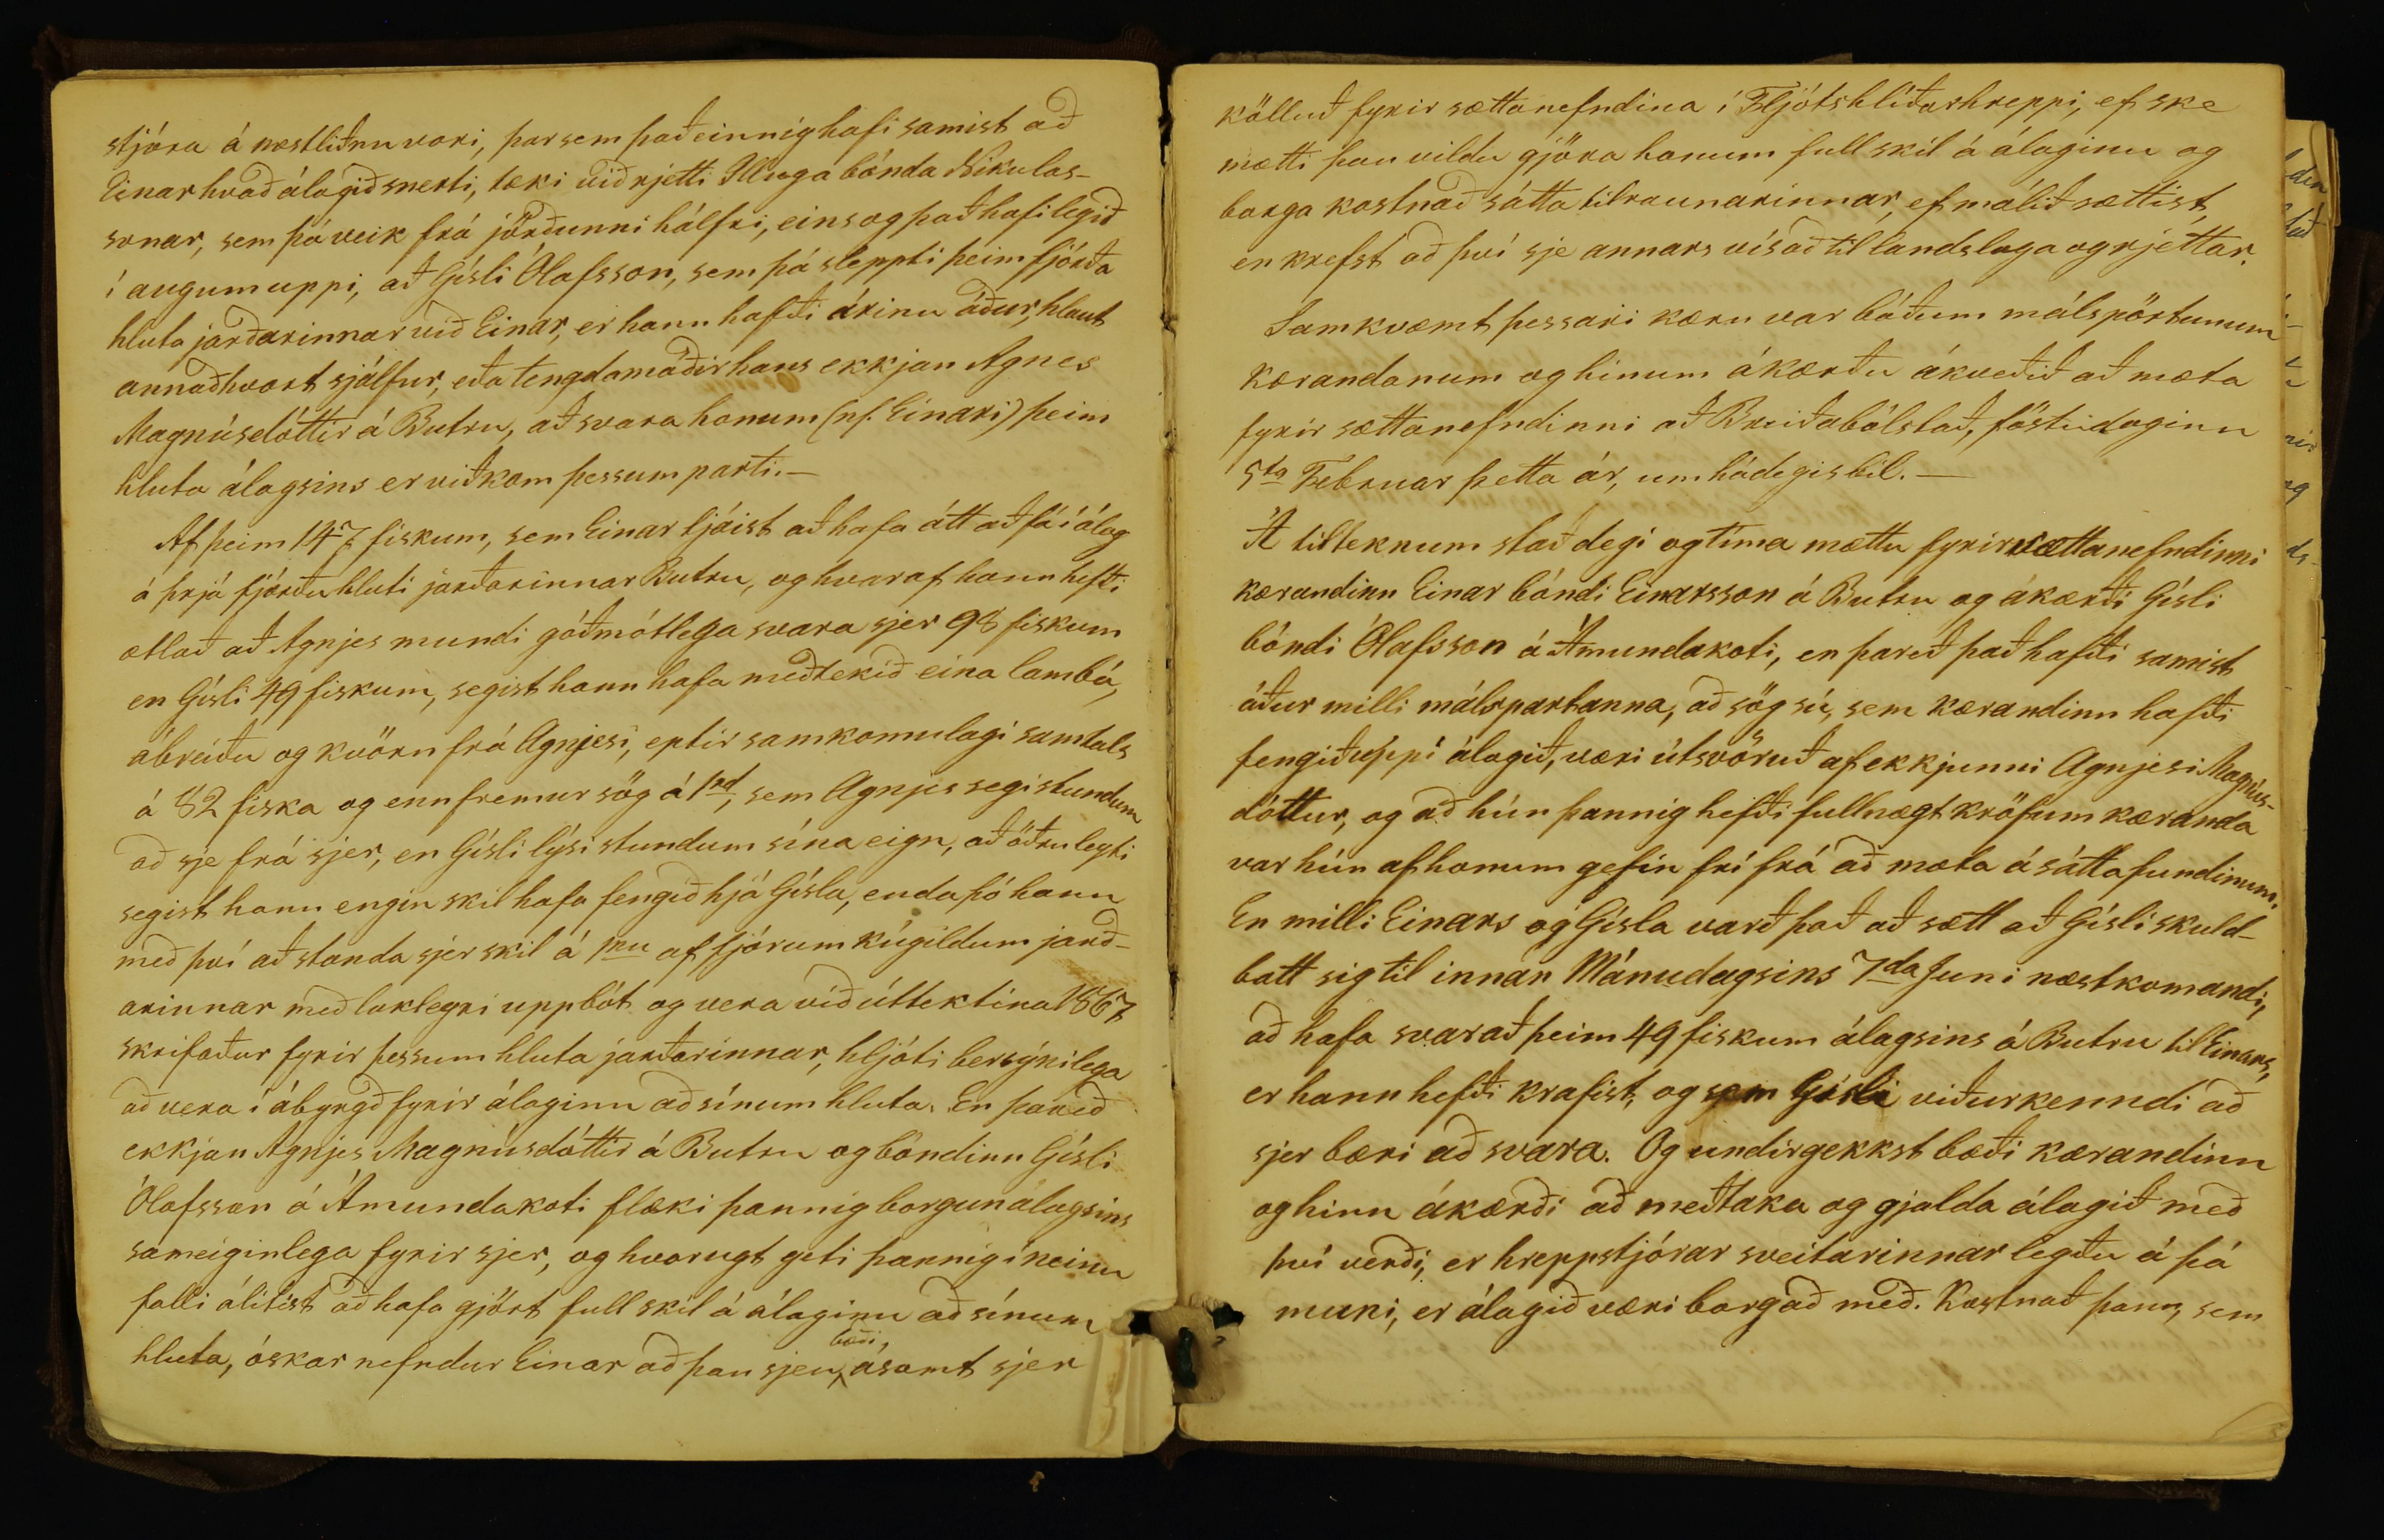 stjóra á næstliðnu vori, þar sem það einnig hafi samist að
Einar hvað álagið snerti, tæki við rjetti Illuga bónda Nikulás-
sonar, sem þá veik frá jörðunni hálfri, eins og það hafi legið
í augum uppi, að Gísli Ólafsson, sem þá sleppti þeim fjórða
hluta jarðarinnar við Einar, er hann hafði árinu áður, hlaut
annaðhvort sjálfur, eða tengdamóðir hans ekkjan Agnes
Magnúsdóttir á Butru, að svara honum (nf. Einari) þeim
hluta álagsins er viðkom þessum parti.—
Af þeim 147 fiskum, sem Einar tjáist að hafa átt að fá í álag
á þrjá fjórðu hluti jarðarinnar Butru, og hvaraf hann hefði
ætlað að Agnjes mundi góðmótlega svara sjer 98 fiskum
en Gísli 49 fiskum, segist hann hafa meðtekið eina lambá,
ábreiðu og kvörn frá Agnjesi, eptir samkomulagi samtals
á 82 fiska og ennfremur sög á 1rd, sem Agnjes segi stundum
að sje frá sjer, en Gísli lýsi stundum sína eign, að öðru leyti
segist hann engin skil hafa fengið hjá Gísla, enda þó hann
með því að standa sjer skil á 1nu af fjórum kúgildum jarð-
arinnar með laklegri uppbót og vera við úttektina 1867
skrifaður fyrir þessum hluta jarðarinnar, hljóti bersýnilega
að vera í ábyrgð fyrir álaginu að sínum hluta. En þareð
ekkjan Agnjes Magnúsdóttir á Butru og bóndinn Gísli
Ólafsson á Ámundakoti flæki þannig borgun álagsins
sameiginlega fyrir sjer, og hvorugt geti þannig í neinu
falli álitist að hafa gjört full skil á álaginu að sínum
hluta, óskar nefndur Einar að þau sjeu, bæði, ásamt sjer
kölluð fyrir sættanefndina í Fljótshlíðarhreppi, ef ske
mætti þau vildu gjöra honum full skil á álaginu og
borga kostnað sáttatilraunarinnar, ef málið sættist,
en krefst að því sje annars vísað til landslaga og rjettar.
Samkvæmt þessari kæru var báðum málspörtunum
kærandanum og hinum ákærðu ákveðið að mæta
fyrir sættanefndinni að Breiðabólstað, föstudaginn
5ta Februar þetta ár, um hádegisbil.—
Á tilteknum stað degi og tíma mættu fyrir sættanefndinni
kærandinn Einar bóndi Einarsson á Butru og ákærði Gísli
bóndi Ólafsson á Ámundakoti, en þareð það hafði samist
áður milli málspartanna, að sög sú, sem kærandinn hafði
fengið uppí álagið, væri útsvöruð af ekkjunni Agnjesi Magnús-
dóttur, og að hún þannig hefði fullnægt kröfum kæranda
var hún af honum gefin frí frá að mæta á sáttafundinum.
En milli Einars og Gísla varð það að sætt að Gísli skuld-
batt sig til innan Mánudagsins 7da Juni næstkomandi,
að hafa svarað þeim 49 fiskum álagsins á Butru til Einars,
er hann hefði krafist, og sem Gísli viðurkenndi að
sjer bæri að svara. Og undirgekkst bæði kærandinn
og hinn ákærði að meðtaka og gjalda álagið með
því verði, er hreppstjórar sveitarinnar legðu á þá
muni, er álagið væri borgað með. Kostnað þann, sem